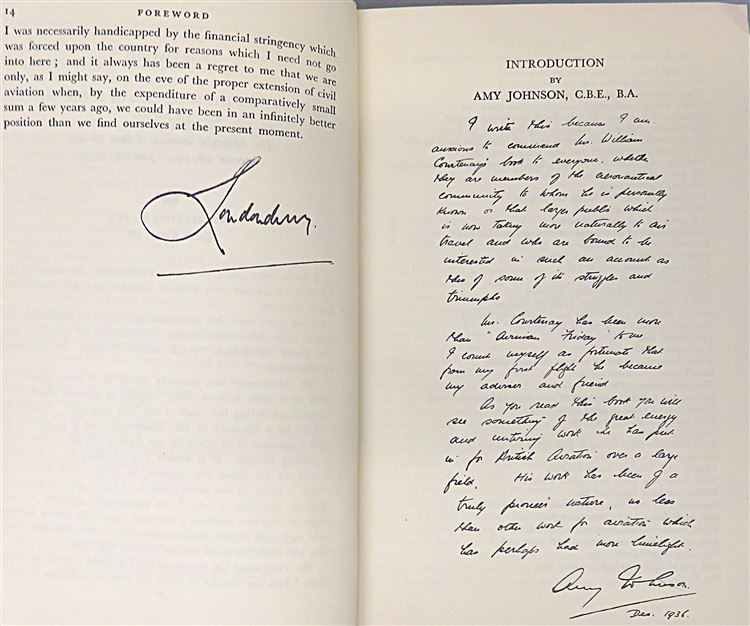 14 FOREWORD
I was necessarily handicapped by the financial stringency which
was forced upon the country for reasons which I need not go
into here ; and it always has been a regret to me that we are
only, as I might say, on the eve of the proper extension of civil
aviation when, by the expenditure of a comparatively small
sum a few years ago, we could have been in an infinitely better
position than we find ourselves at the present moment.
Londonderry.
INTRODUCTION
BY
AMY JOHNSON, C.B.E., B.A.
I write this because I am
anxious to commend Mr. William
Courtenay's book to everyone, whether
they are members of the aeronautical
community to whom he is personally
known or that larger public which
is now taking more naturally to air
travel and who are bound to be
interested in such an account as
this of some of its struggles and
triumphs
Mr. Courtenay has been more
than "Airman Friday" to me
I count myself as fortunate that
from my first flight he became
my adviser and friend
As you read this book you will
see something of the great energy
and untiring work he has put
in for British Aviation over a large
field. His work has been of a
truly pioneer nature, no less
than other work for aviation which
has perhaps had more limelight.
Amy Johnson.
Dec. 1936.